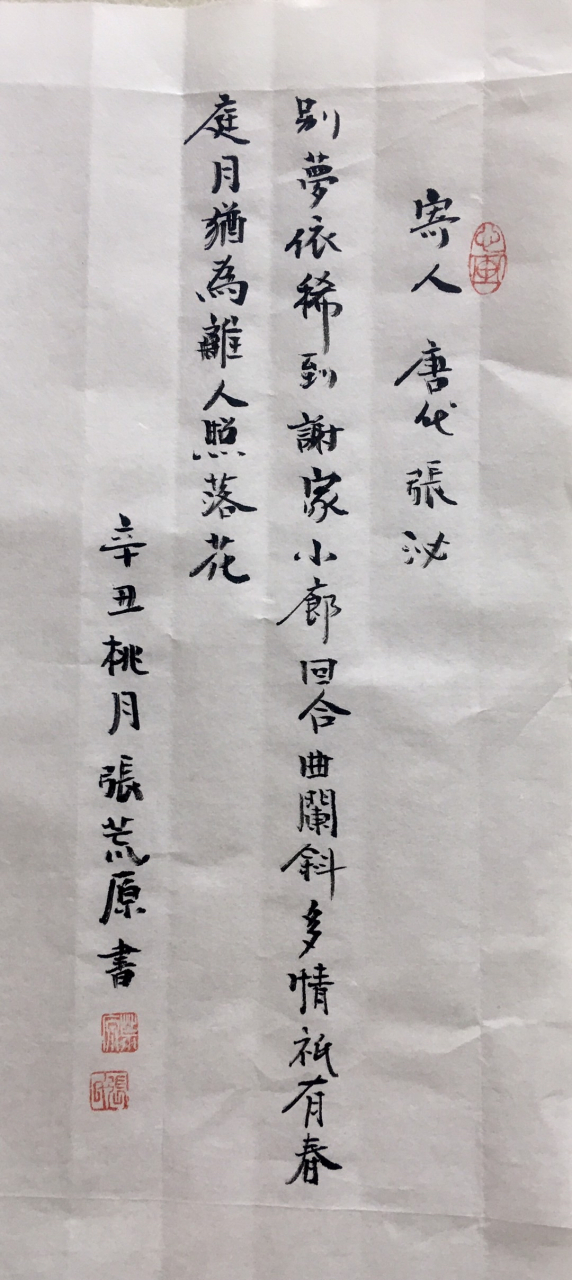 寄人 唐代張泌
别夢依稀到謝家小廊回合曲闌斜多情祗有春
庭月猶為離人照落花
辛丑桃月張荒原書